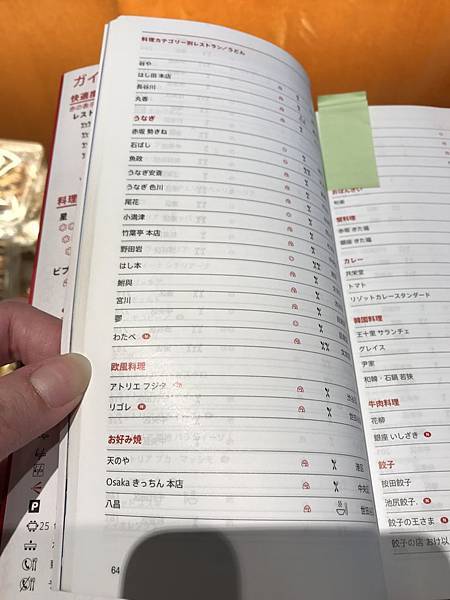 料理カテゴリー別レストラン／うどん
谷や
はし田 本店
長谷川
丸香
うなぎ
赤坂 勢きね
石ばし
魚政
うなぎ安斎
うなぎ 色川
尾花
小満津
竹葉亭 本店
野田岩
はし本
鮒與
宮川
わたべ N
欧風料理
アトリエ フジタ
リゴレ N
お好み焼
天のや 港区
Osaka きっちん 本店 中央区
八昌 世田谷
64
ガイ
快適度
レスト
料理
星
ビブ
P
25
おばんざい
蟹料理
赤坂 きた福
銀座 きた福
カレー
共栄堂
トマト
リゾットカレースタンダード
韓国料理
王十里 サランチェ
グレイス
尹家
和韓・石鍋 若狭
牛肉料理
花柳
銀座 いしざき N
餃子
按田餃子
池尻餃子. N
餃子の王さま N
餃子の店 おけ以